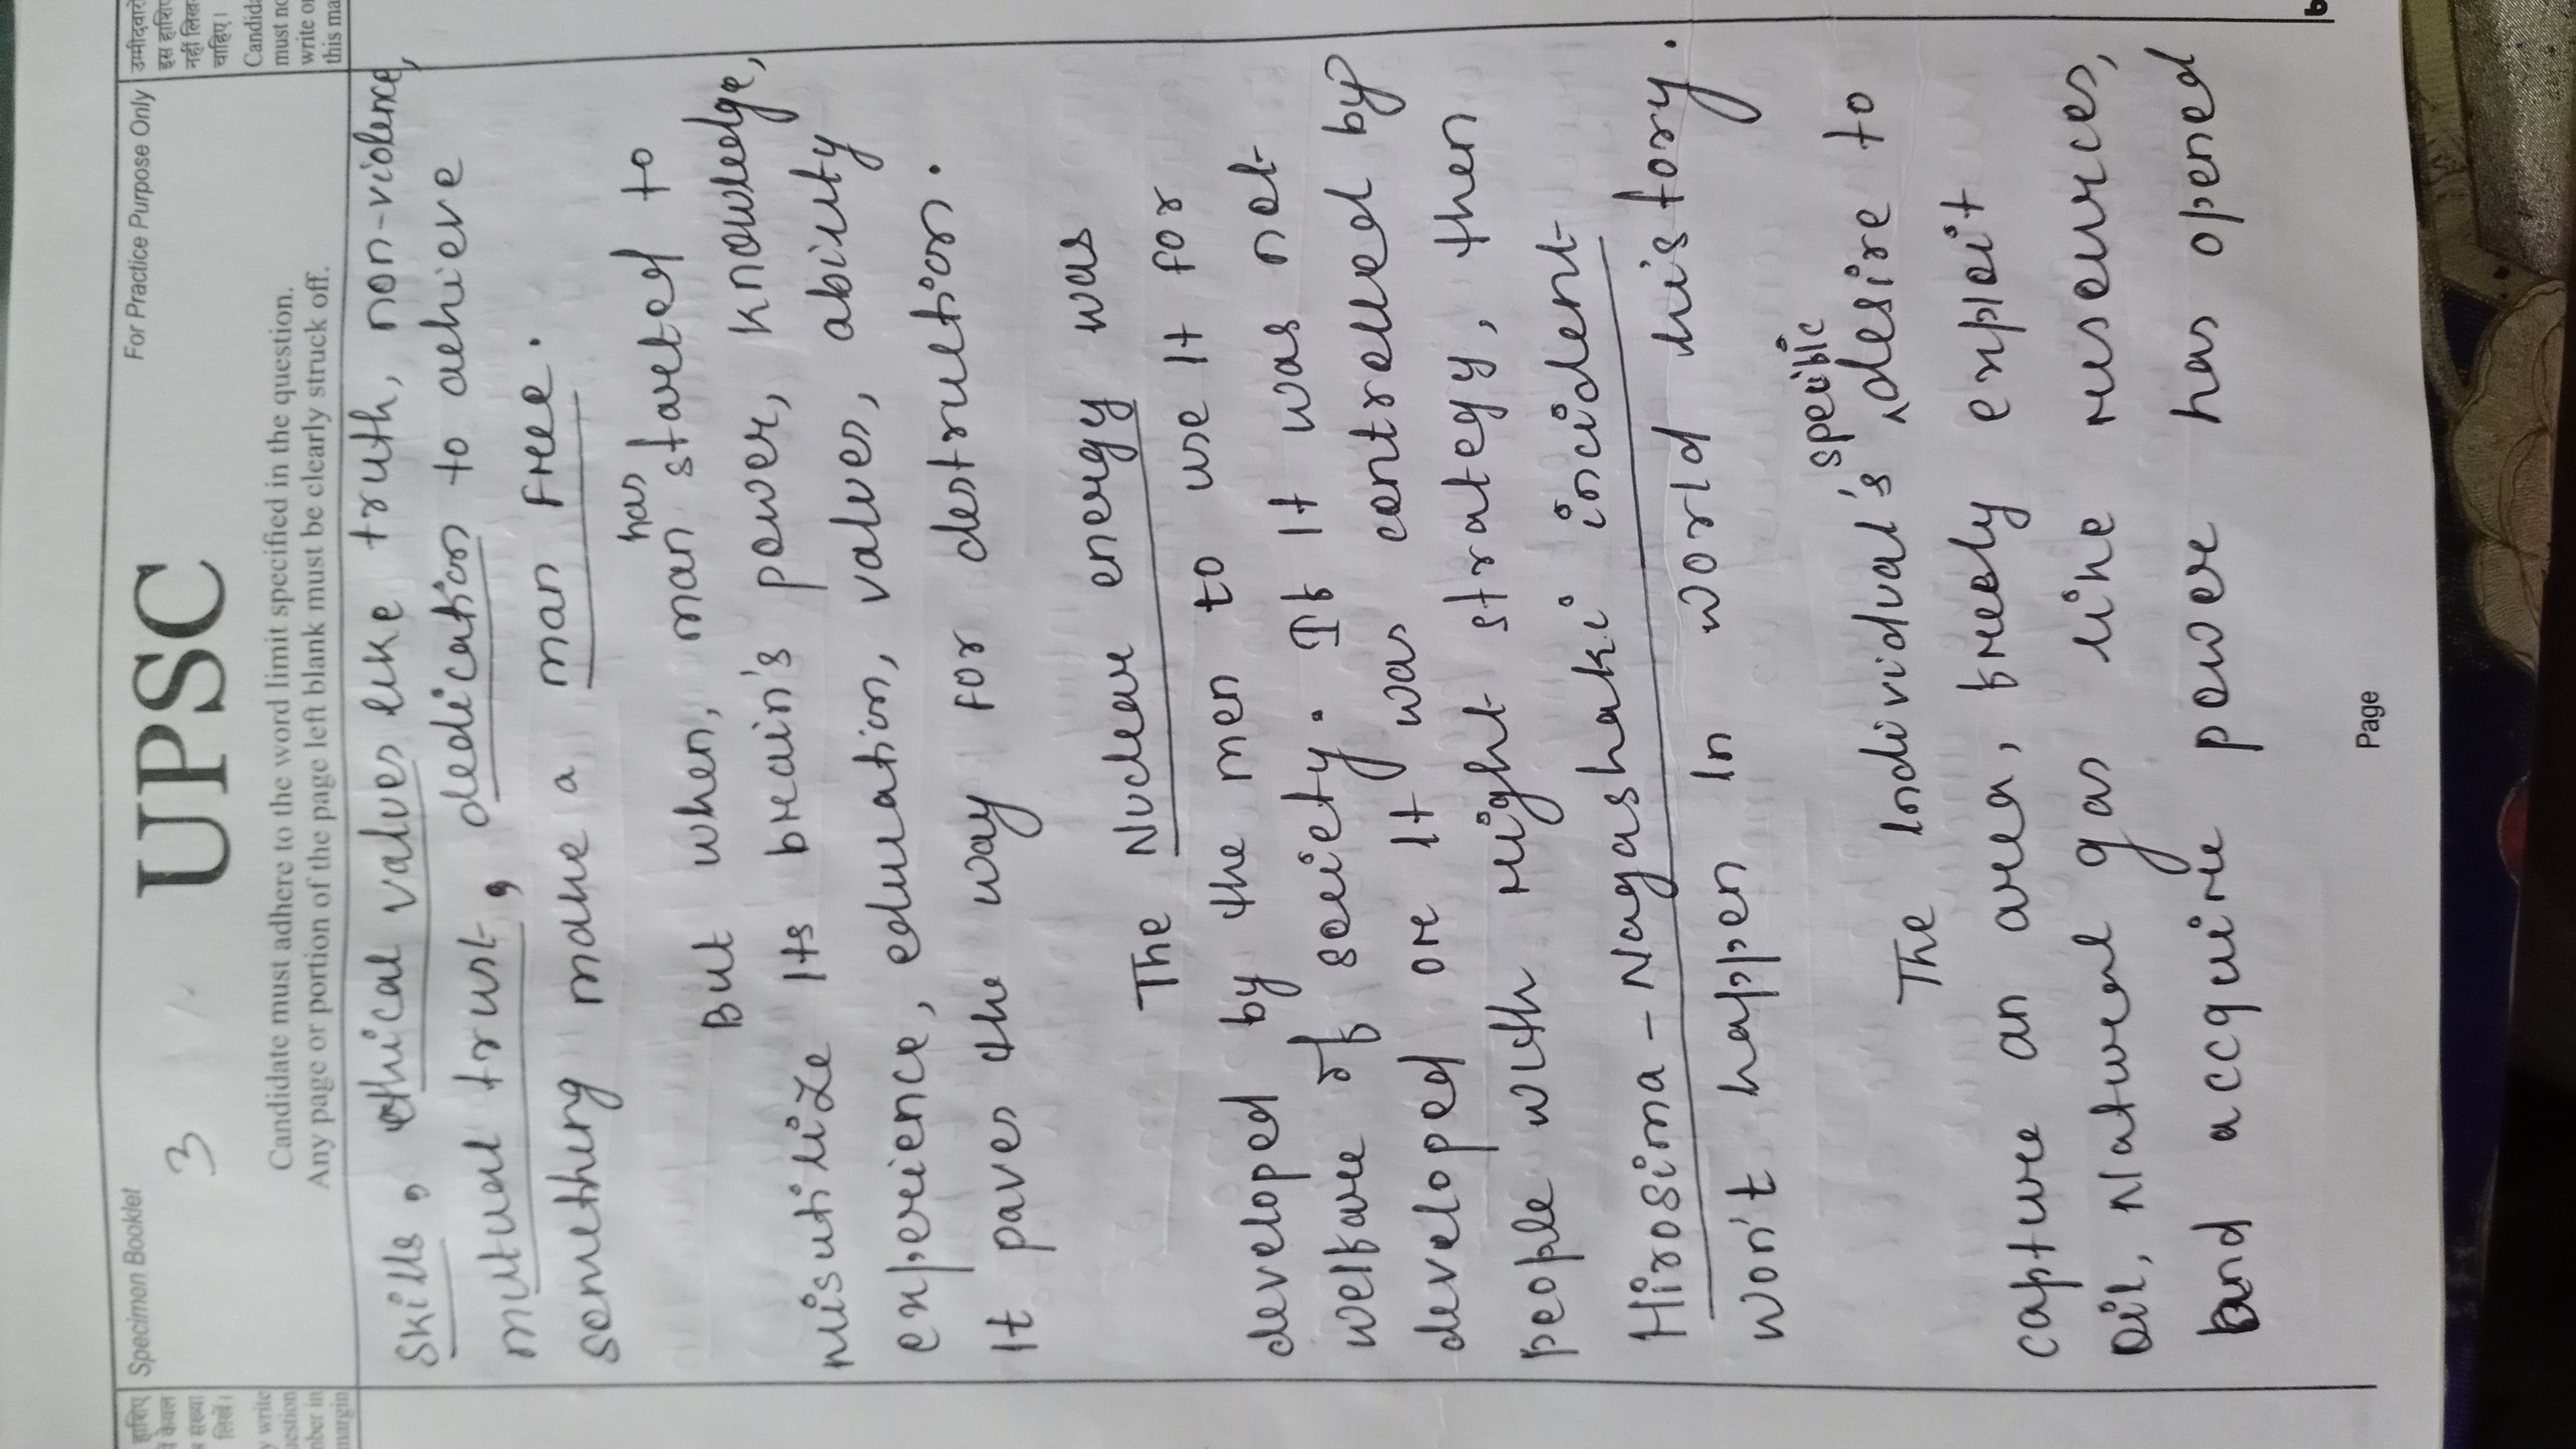 Specimen Booklet
For Practice Purpose Only
3
UPSC
Candidate must adhere to the word limit specified in the question.
Any page or portion of the page left blank must be clearly struck off.
उम्मीदवारों
इस हाशिए
नहीं लिखना
चाहिए।
must no
write or
this ma
skills, ethical values like truth, non-violence,
mutual trust, dedication to achieve
something make a man free.
But when, man has started to
misutilize Its brain's power, knowledge,
experience, education, values, ability
It paves the way for destruction.
The Nuclear energy was
developed by the men to use It for
welfare of society. If It was not
developed or It was controlled by
people with right strategy, then
Hirosima - Nagashaki incident
won't happen In world history.
The Individual's specific desire to
capture an area, freely exploit
Oil, Natural gas like resources,
and accquire power has opened
Page